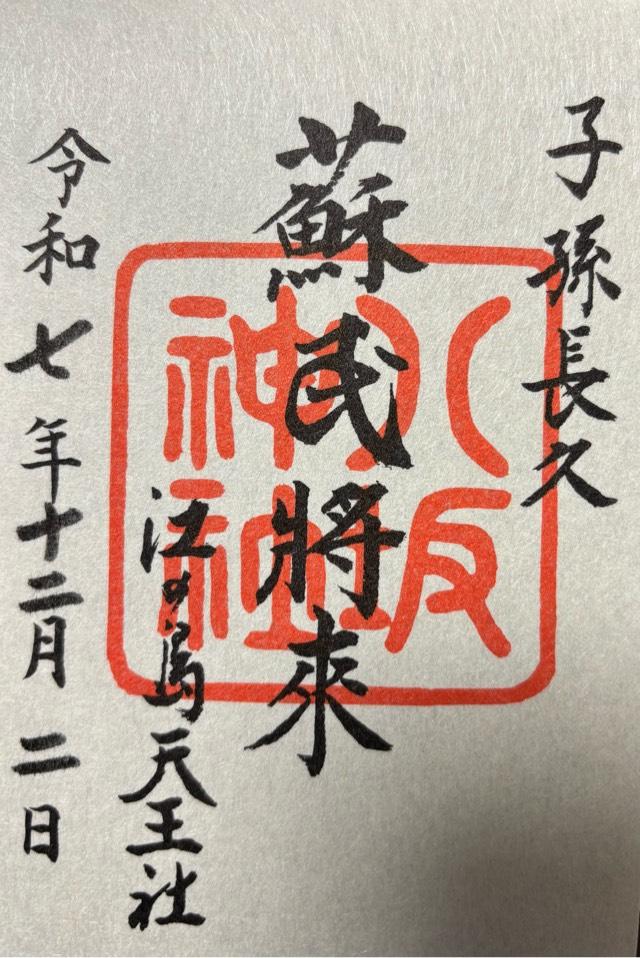 子孫長久
蘇民將來
江の島天王社
令和七年十二月二日
八坂神社